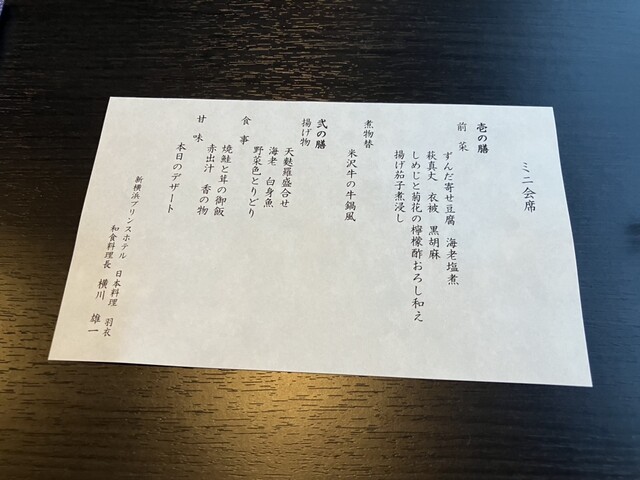 ミニ会席
壱の膳
前菜
ずんだ寄せ豆腐 海老塩煮
萩真丈 衣被 黒胡麻
しめじと菊花の檸檬酢おろし和え
揚げ茄子煮浸し
煮物替
米沢牛の牛鍋風
弐の膳
揚げ物
天麩羅盛合せ
海老 白身魚
野菜色とりどり
食事
焼鮭と茸の御飯
赤出汁 香の物
甘味
本日のデザート
新横浜プリンスホテル 日本料理 羽衣
和食料理長 横川 雄一